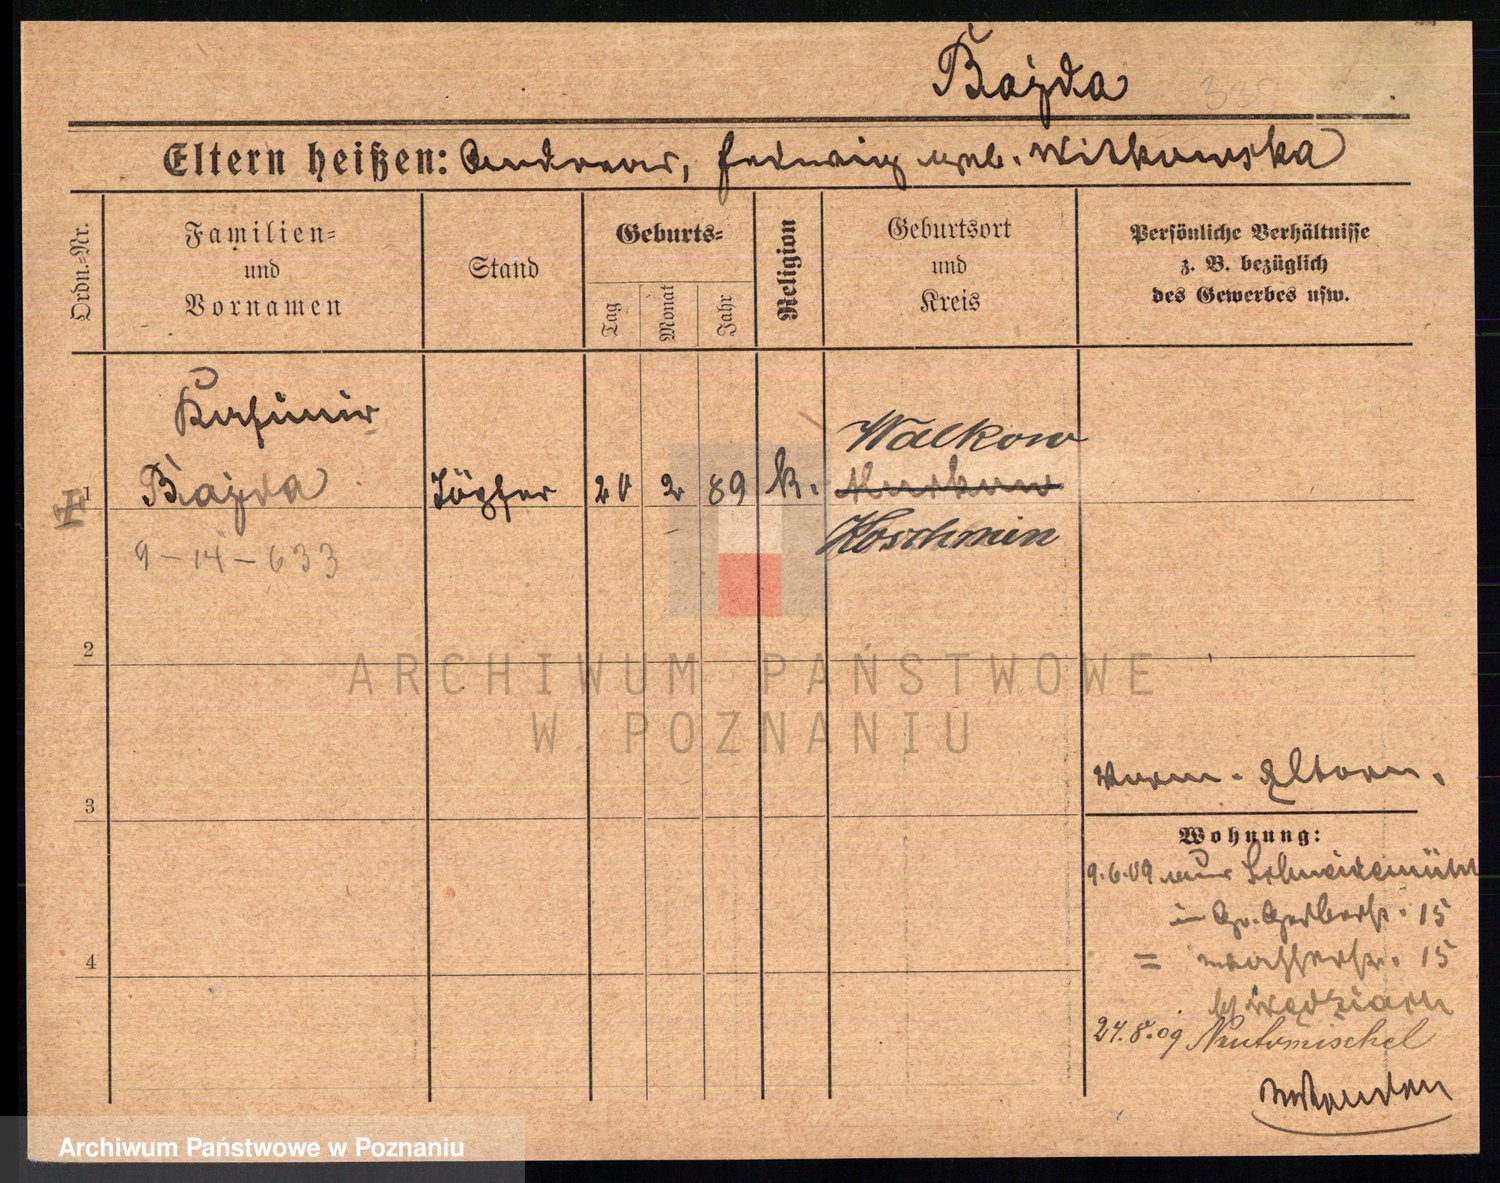 Bayda
Eltern heißen: Andreas, Hedwig geb. Witkowska
Ordn.-Nr.
Familien-
und
Vornamen
Stand
Geburts-
Tag
Monat
Jahr
Religion
Geburtsort
und
Kreis
Persönliche Verhältnisse
z. B. bezüglich
des Gewerbes usw.
Kasimir
Walkow
1 Bayda Töpfer 20 2 89 k.
Koschmin
9-14-633
2
3
Eltern.
Wohnung:
9.6.09 aus Schneidemühl
in Gr. Gerberstr. 15
= Wasserstr. 15
4
24.8.09 Neutomischel
ARCHIWUM PAŃSTWOWE
W POZNANIU
Archiwum Państwowe w Poznaniu